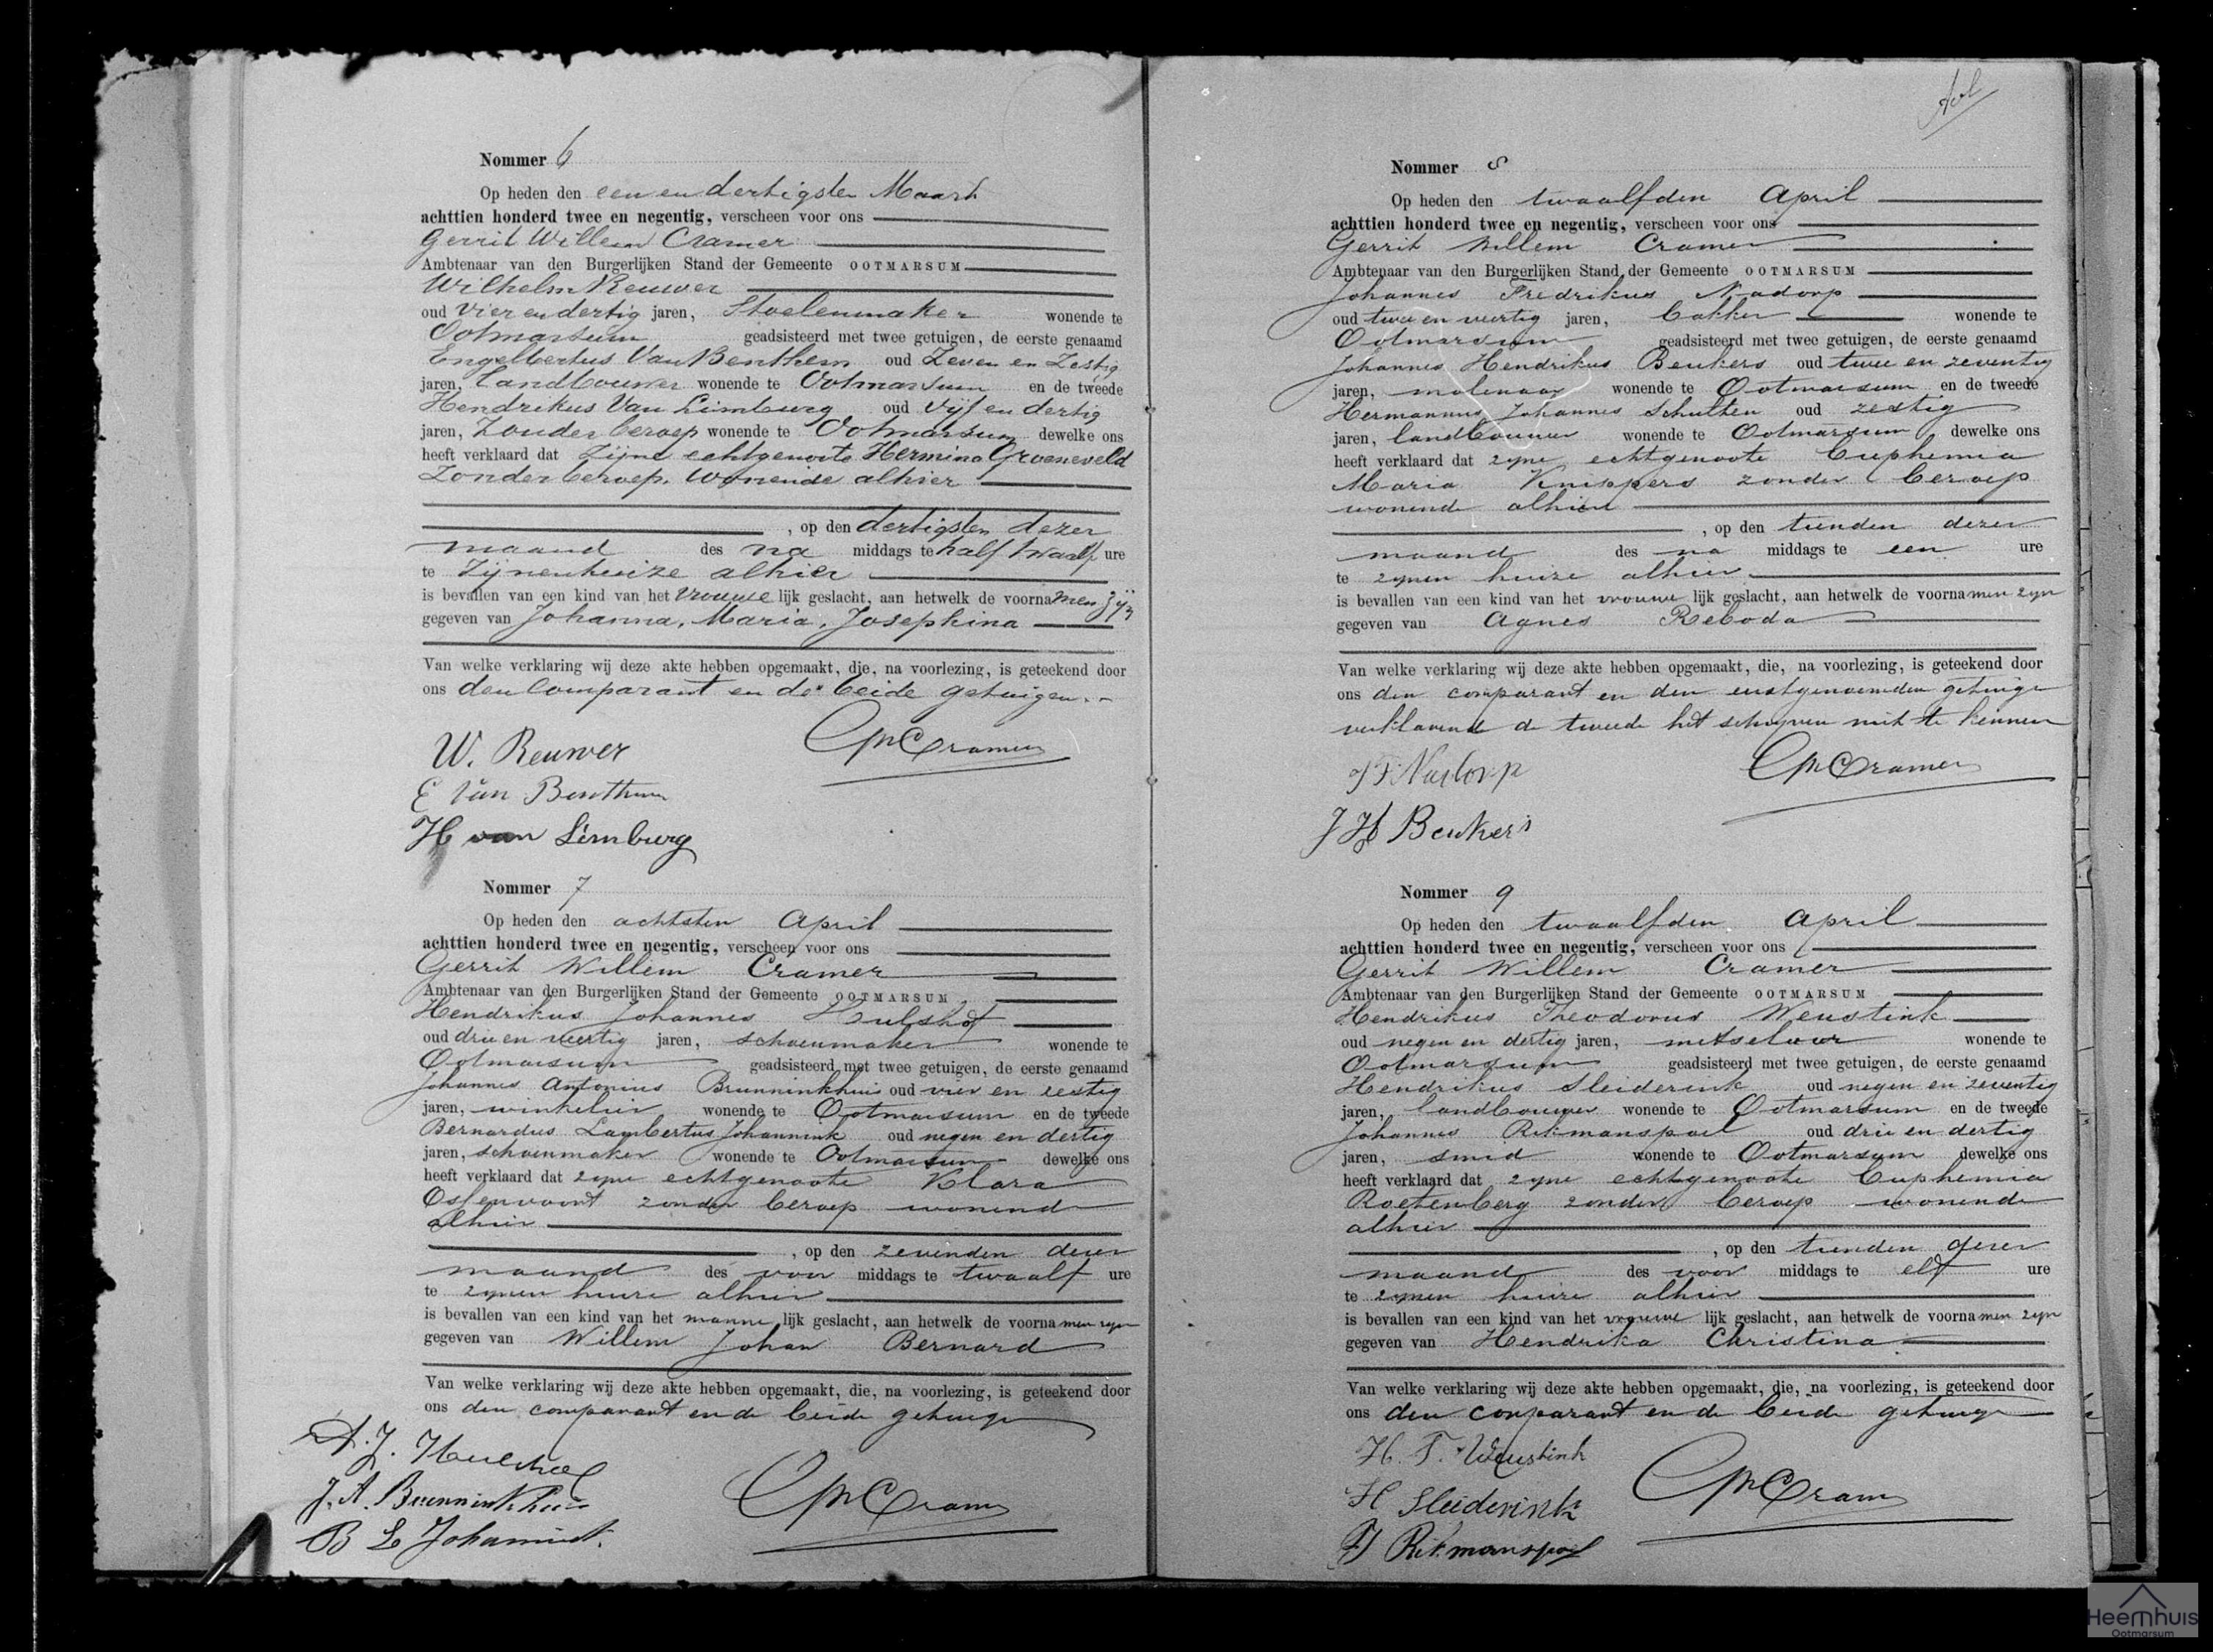 Nommer 6
Op heden den een en dertigsten Maart
achttien honderd twee en negentig, verscheen voor ons
Gerrit Willem Cramer
Ambtenaar van den Burgerlijken Stand der Gemeente OOTMARSUM
Wilhelm Reuwer
oud vier en dertig jaren, Stoelenmaker wonende te
Ootmarsum geadsisteerd met twee getuigen, de eerste genaamd
Engelbertus Van Benthem oud Zeven en Zestig
jaren, landbouwer wonende te Ootmarsum en de tweede
Hendrikus Van Limburg oud vijf en dertig
jaren, Zonder beroep wonende te Ootmarsum dewelke ons
heeft verklaard dat Zijne echtgenoote Hermina Groeneveld
Zonder beroep, wonende alhier
, op den dertigsten dezer
maand des na middags te half twaalf ure
te Zijnenhuize alhier
is bevallen van een kind van het vrouwe lijk geslacht, aan hetwelk de voornamen zijn
gegeven van Johanna, Maria, Josephina
Van welke verklaring wij deze akte hebben opgemaakt, die, na voorlezing, is geteekend door
ons den Comparant en de beide getuigen.
W. Reuwer GWCramer
E Van Benthem
H van Limburg
Nommer 7
Op heden den achtsten April
achttien honderd twee en negentig, verscheen voor ons
Gerrit Willem Cramer
Ambtenaar van den Burgerlijken Stand der Gemeente OOTMARSUM
Hendrikus Johannes Hulshof
oud drie en veertig jaren, schoenmaker wonende te
Ootmarsum geadsisteerd met twee getuigen, de eerste genaamd
Johannes Antonius Brunninkhuis oud vier en zestig
jaren, winkelier wonende te Ootmarsum en de tweede
Bernardus Lambertus Johannink oud negen en dertig
jaren, schoenmaker wonende te Ootmarsum dewelke ons
heeft verklaard dat zyne echtgenoote Klara
Ossenvoort zonder beroep wonende
alhier
, op den zevenden dezer
maand des voor middags te twaalf ure
te zynen huize alhier
is bevallen van een kind van het manne lijk geslacht, aan hetwelk de voornamen zyn
gegeven van Willem Johan Bernard
Van welke verklaring wij deze akte hebben opgemaakt, die, na voorlezing, is geteekend door
ons den comparant en de beide getuigen
J. A. Brunninkhuis GWCramer
B L Johannink
Nommer 8
Op heden den twaalfden April
achttien honderd twee en negentig, verscheen voor ons
Gerrit Willem Cramer
Ambtenaar van den Burgerlijken Stand der Gemeente OOTMARSUM
Johannes Fredrikus Nadorp
oud twee en veertig jaren, bakker wonende te
Ootmarsum geadsisteerd met twee getuigen, de eerste genaamd
Johannes Hendrikus Beukers oud twee en zeventig
jaren, molenaar wonende te Ootmarsum en de tweede
Hermannus Johannes Schulten oud zestig
jaren, landbouwer wonende te Ootmarsum dewelke ons
heeft verklaard dat zyne echtgenoote Euphemia
Maria Knippers zonder beroep
wonende alhier
, op den tienden dezer
maand des na middags te een ure
te zynen huize alhier
is bevallen van een kind van het vrouwe lijk geslacht, aan hetwelk de voornamen zyn
gegeven van Agnes Reboda
Van welke verklaring wij deze akte hebben opgemaakt, die, na voorlezing, is geteekend door
ons den comparant en den eerstgenoemden getuige
verklarende de tweede het schryven niet te kennen
J F Nadorp GWCramer
J H Beukers
Nommer 9
Op heden den twaalfden April
achttien honderd twee en negentig, verscheen voor ons
Gerrit Willem Cramer
Ambtenaar van den Burgerlijken Stand der Gemeente OOTMARSUM
Hendrikus Theodorus Weustink
oud negen en dertig jaren, metselaar wonende te
Ootmarsum geadsisteerd met twee getuigen, de eerste genaamd
Hendrikus Sleiderink oud negen en zeventig
jaren, landbouwer wonende te Ootmarsum en de tweede
Johannes Rikmanspoel oud drie en dertig
jaren, smid wonende te Ootmarsum dewelke ons
heeft verklaard dat zyne echtgenoote Euphemia
Roetenberg zonder beroep wonende
alhier
, op den tienden dezer
maand des voor middags te elf ure
te zynen huize alhier
is bevallen van een kind van het vrouwe lijk geslacht, aan hetwelk de voornamen zyn
gegeven van Hendrika Christina
Van welke verklaring wij deze akte hebben opgemaakt, die, na voorlezing, is geteekend door
ons den comparant en de beide getuigen
H. T. Weustink GWCramer
H Sleiderink
Rikmanspoel
Heemhuis
Ootmarsum